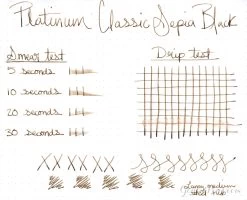 Platinum Classic Sepia Black
Smear test
Drip test
5 seconds
10 seconds
20 seconds
30 seconds
XXXXXX
Lamy medium
steel nib